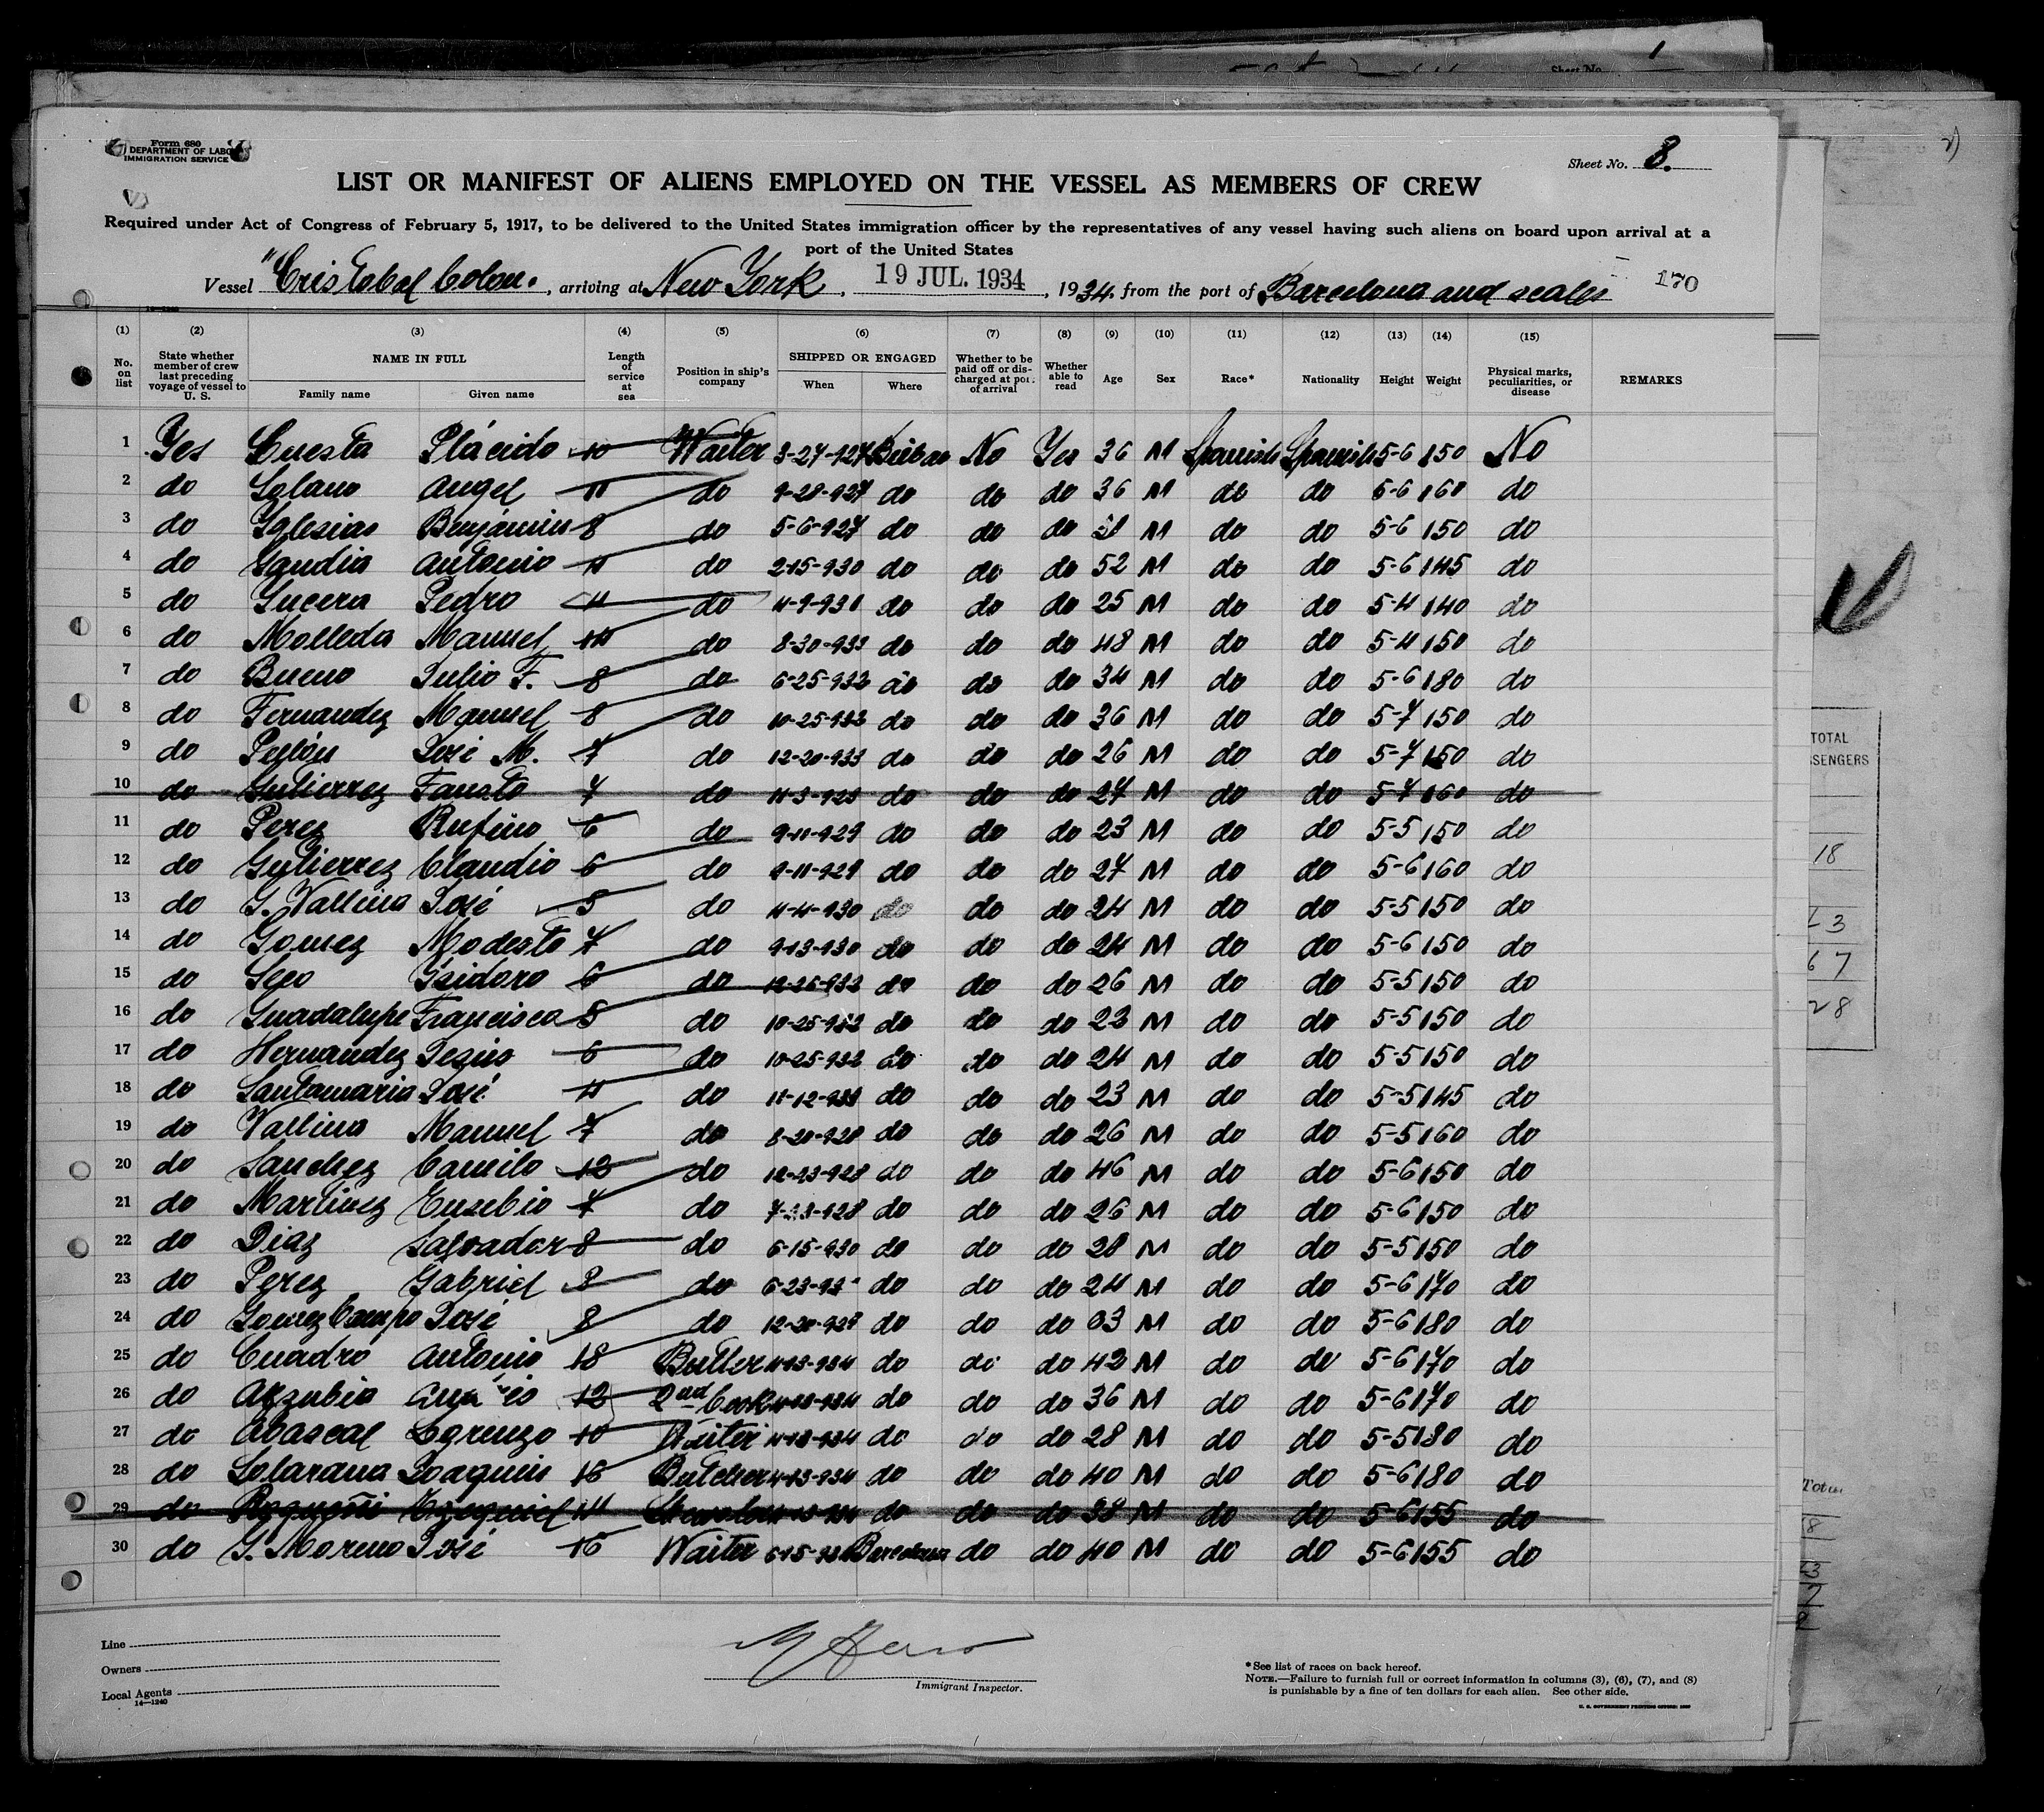 Form 680
DEPARTMENT OF LABOR
IMMIGRATION SERVICE
Sheet No. 8.
LIST OR MANIFEST OF ALIENS EMPLOYED ON THE VESSEL AS MEMBERS OF CREW
Required under Act of Congress of February 5, 1917, to be delivered to the United States immigration officer by the representatives of any vessel having such aliens on board upon arrival at a
port of the United States
Vessel "Cristobal Colon. , arriving at New York , 19 JUL. 1934 , 1934. from the port of Barcelona and scales 170
(1) (2) (3) (4) (5) (6) (7) (8) (9) (10) (11) (12) (13) (14) (15)
No. on list State whether member of crew last preceding voyage of vessel to U. S. NAME IN FULL Family name Given name Length of service at sea Position in ship's company SHIPPED OR ENGAGED When Where Whether to be paid off or discharged at port of arrival Whether able to read Age Sex Race* Nationality Height Weight Physical marks, peculiarities, or disease REMARKS
1 Yes Cuesta Plácido 10 Waiter 3-27-927 Bilbao No Yes 36 M Spanish Spanish 5-6 150 No
2 do Solano Angel 11 do 9-28-927 do do do 36 M do do 5-6 160 do
3 do Yglesias Benjamin 8 do 5-6-927 do do do M do do 5-6 150 do
4 do Gandia Antonio 11 do 2-15-930 do do do 52 M do do 5-6 145 do
5 do Lucera Pedro 4 do 4-9-931 do do do 25 M do do 5-4 140 do
6 do Molleda Manuel 14 do 8-30-933 do do do 48 M do do 5-4 150 do
7 do Bueno Julio F. 8 do 6-25-933 do do do 34 M do do 5-6 180 do
8 do Fernandez Manuel 8 do 10-25-933 do do do 36 M do do 5-7 150 do
9 do José M. 7 do 12-20-933 do do do 26 M do do 5-7 150 do
10 do Gutierrez Fausto 7 do 4-3-929 do do do 27 M do do 5-7 160 do
11 do Perez Rufino 6 do 9-11-929 do do do 23 M do do 5-5 150 do
12 do Gutierrez Claudio 6 do 9-11-929 do do do 27 M do do 5-6 160 do
13 do G. Vallina José 5 do 4-4-930 do do do 24 M do do 5-5 150 do
14 do Gomez Modesto 7 do 9-13-930 do do do 24 M do do 5-6 150 do
15 do Isidoro 6 do 12-26-933 do do do 26 M do do 5-5 150 do
16 do Guadalupe Francisco 5 do 10-25-933 do do do 23 M do do 5-5 150 do
17 do Hernandez Jesús 6 do 10-25-933 do do do 24 M do do 5-5 150 do
18 do Santamaria José 4 do do do do 23 M do do 5-5 145 do
19 do Vallina Manuel 7 do 8-20-928 do do do 26 M do do 5-5 160 do
20 do Sanchez Camilo 12 do 12-23-928 do do do 46 M do do 5-6 150 do
21 do Martinez Eusebio 7 do 7-23-928 do do do 26 M do do 5-6 150 do
22 do Diaz Salvador 8 do 6-15-930 do do do 28 M do do 5-5 150 do
23 do Perez Gabriel 8 do do do do 24 M do do 5-6 170 do
24 do Gomez Campo José 8 do 12-20-929 do do do 33 M do do 5-6 180 do
25 do Cuadro Antonio 18 Butler 4-13-934 do do do 42 M do do 5-6 170 do
26 do Azzubia 12 2nd Cook 4-13-934 do do do 36 M do do 5-6 170 do
27 do Abascal Lorenzo 10 Waiter 4-13-934 do do do 28 M do do 5-5 180 do
28 do Solarana Joaquin 16 Butcher 4-13-934 do do do 40 M do do 5-6 180 do
29 do Ezequiel 14 4-13-934 do do do 38 M do do 5-6 155 do
30 do G. Moreno José 16 Waiter Barcelona do do 40 M do do 5-6 155 do
Line
Owners
Local Agents
14—1240
Immigrant Inspector.
*See list of races on back hereof.
NOTE.—Failure to furnish full or correct information in columns (3), (6), (7), and (8)
is punishable by a fine of ten dollars for each alien. See other side.
U. S. GOVERNMENT PRINTING OFFICE
TOTAL
18
67
28